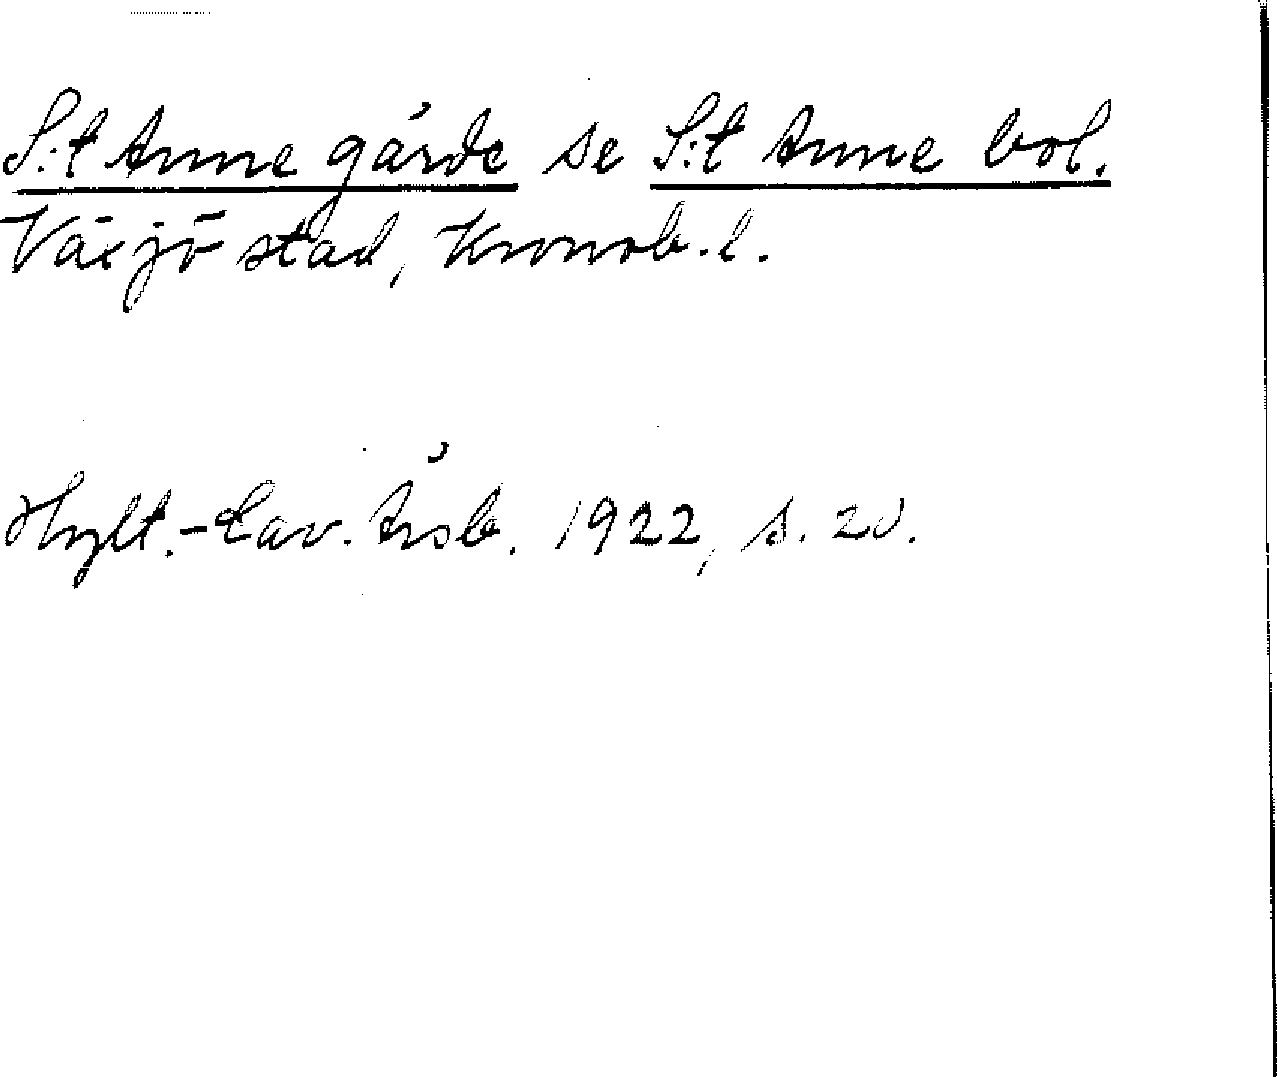 S:t Anne gårde se S:t Anne bol.
Växjö stad, Kronob. l.
Hylt.-Cav. Årsb. 1922, s. 20.